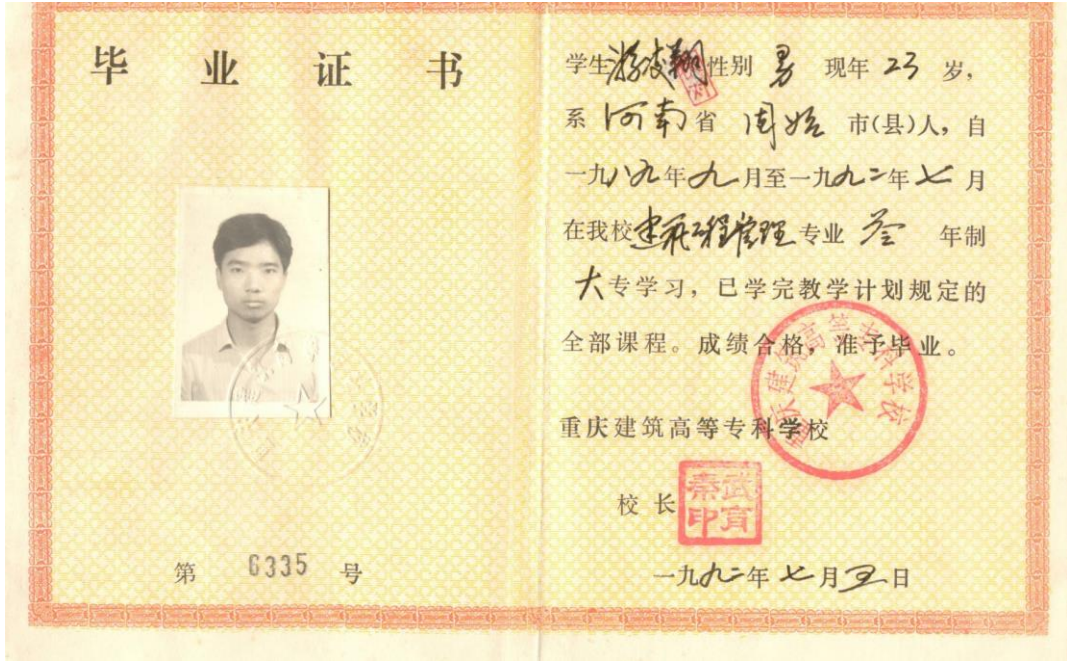 毕 业 证 书
第 6335 号
学生 翔 性别 男 现年 23 岁,
系 河南省 固始 市(县)人, 自
一九八九年九月至一九九二年七月
在我校建筑工程管理专业 叁 年制
大专学习, 已学完教学计划规定的
全部课程。成绩合格, 准予毕业。
重庆建筑高等专科学校
重庆建筑高等专科学校
校 长
武育秦印
一九九二年七月五日